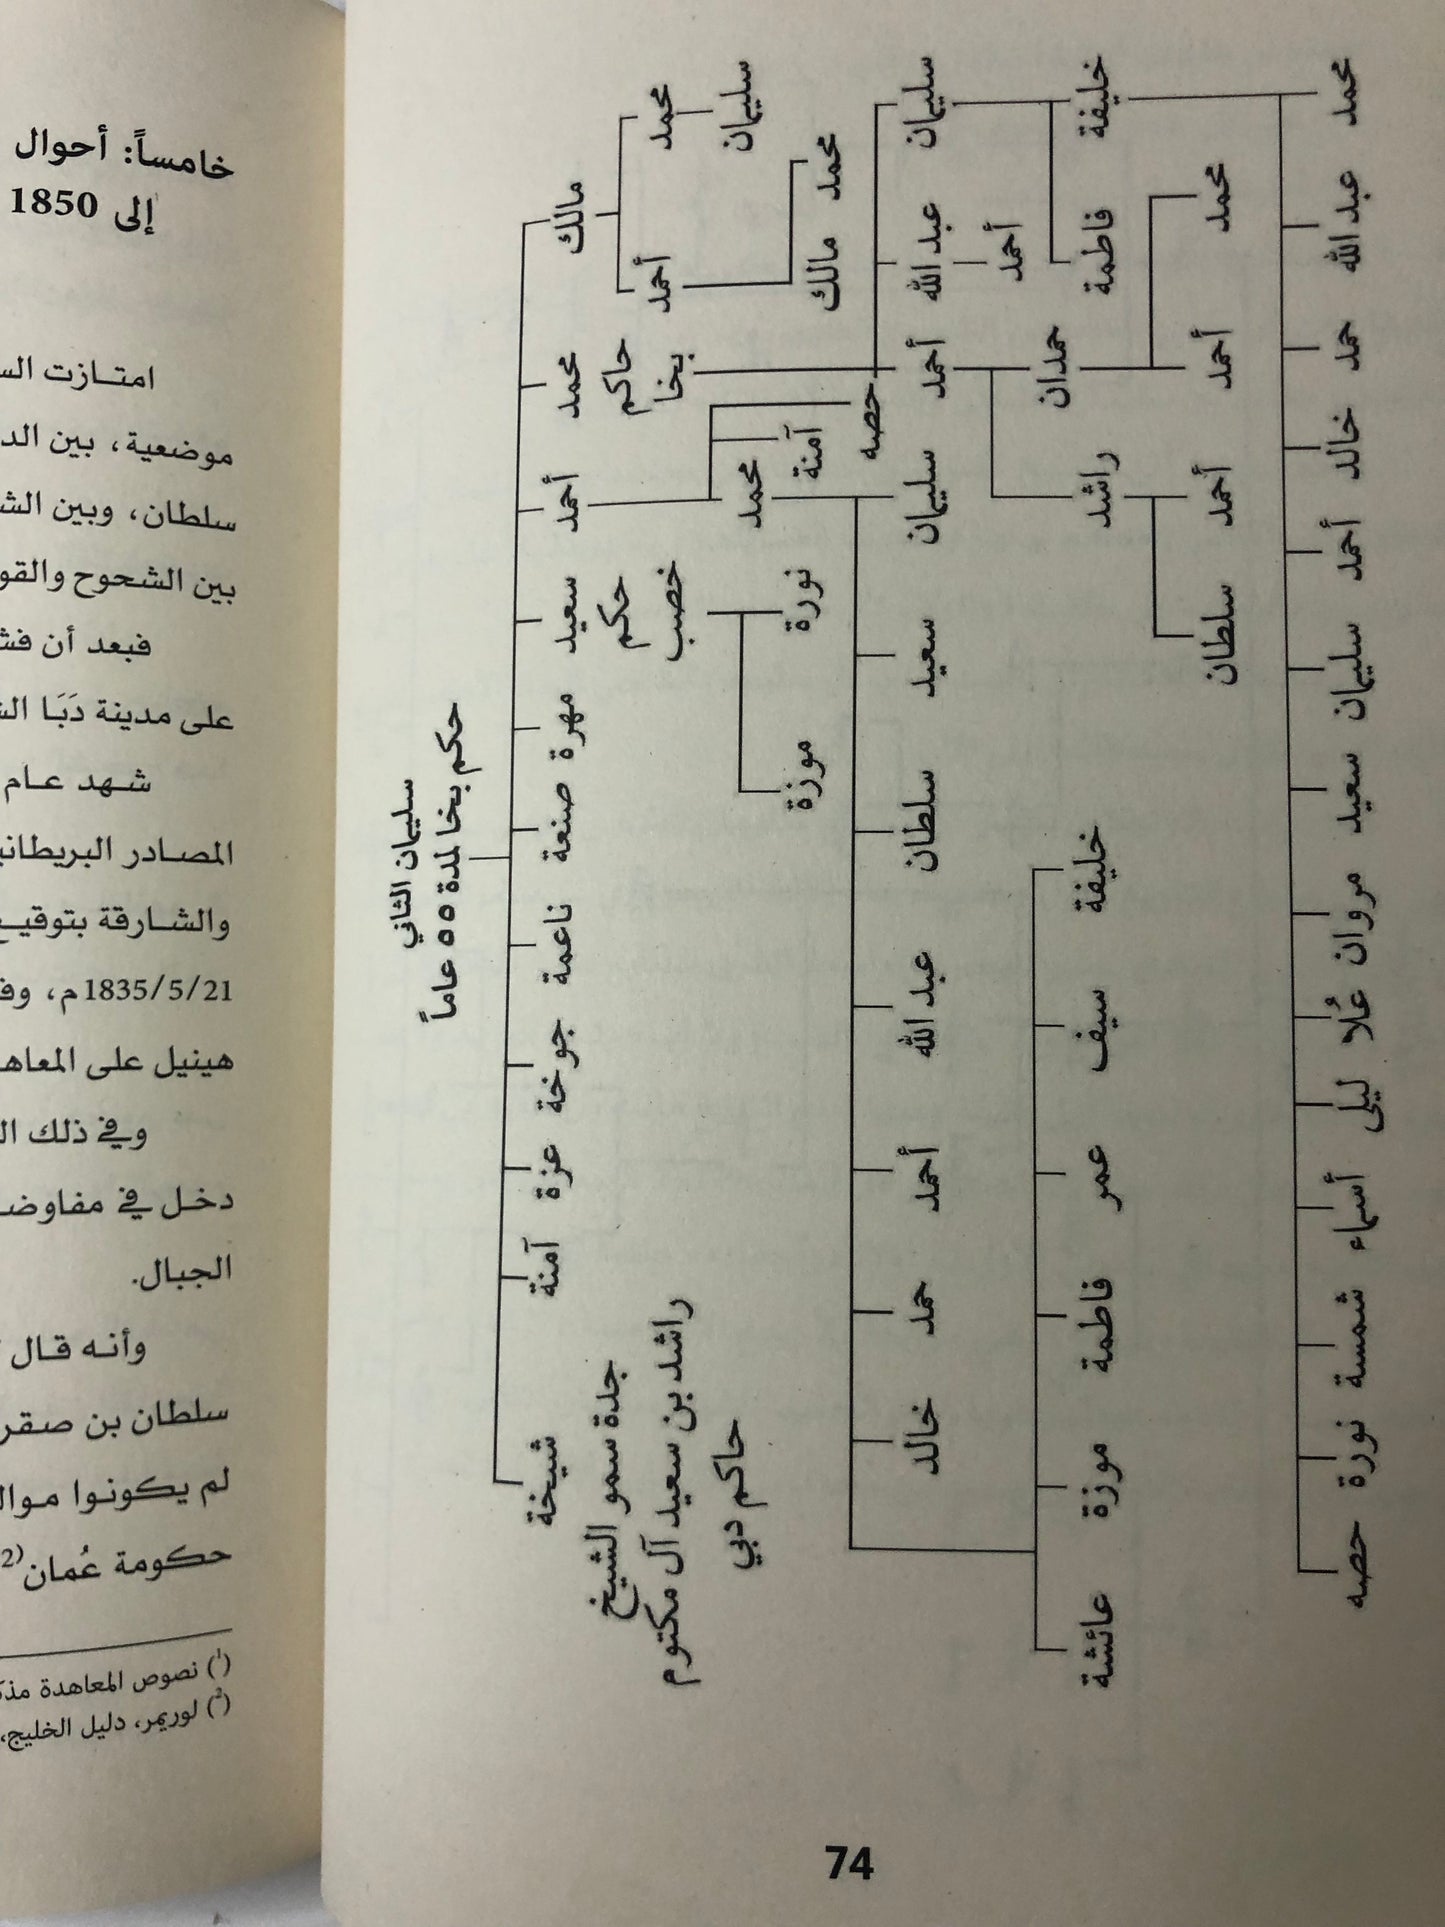 سليمان الثاني
حكم بخا لمدة ٥٥ عاماً
مالك
محمد
أحمد
سعيد
مهرة
صنعة
ناعمة
جوخة
عزة
آمنة
شيخة
حاكم
بخا
حكم
خصب
جدة سمو الشيخ
راشد بن سعيد آل مكتوم
حاكم دبي
محمد
أحمد
سليمان
محمد
مالك
محمد
آمنة
حصه
نورة
موزة
سليمان
عبد الله
أحمد
سليمان
سعيد
سلطان
عبد الله
أحمد
حمد
خالد
أحمد
خليفة
فاطمة
حمدان
راشد
خليفة
سيف
عمر
فاطمة
موزة
عائشة
محمد
أحمد
أحمد
سلطان
محمد
عبد الله
حمد
خالد
أحمد
سليمان
سعيد
مروان
عُلا
ليلى
أسماء
شمسة
نورة
حصه
74
خامساً: أحوال
إلى 1850
امتازت
موضعية، بين
سلطان، وبين
بين الشحوح
فبعد أن
على مدينة دَبَا
شهد عام
المصادر
والشارقة بتوقيع
1835/5/21م،
هينيل على
وفي ذلك
دخل في
الجبال.
وأنه قال
سلطان بن صقر
لم يكونوا
حكومة عُمان(2
(1) نصوص المعاهدة
(2) لوريمر، دليل الخليج،